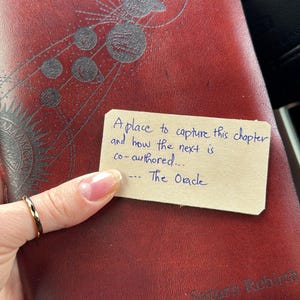 A place to capture this chapter
and how the next is
co-authored...
... The Oracle
Rebirth